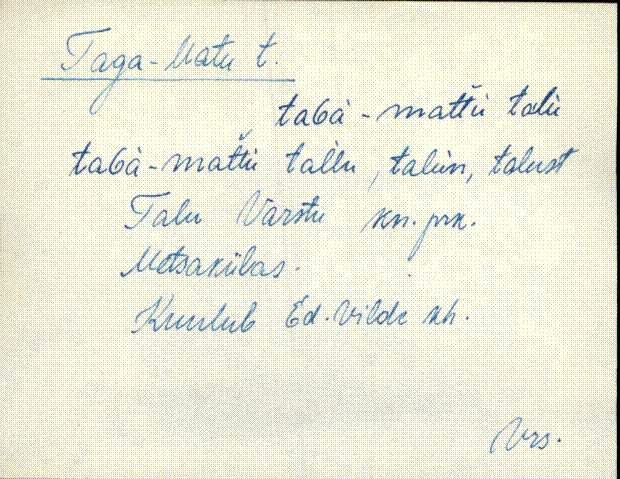 Taga-Matu t.
taɢà-mat̆t̆ù talù
taɢà-mat̆t̆ù tallu, talùn, talust
Talu Varstu kn. prk.
Metsakülas.
Kuulub Ed. Vilde kh.
Vrs.